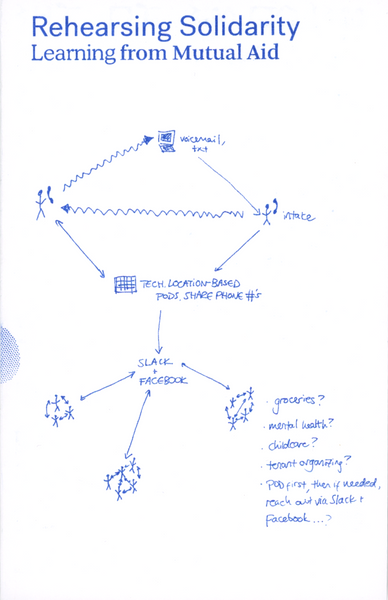 Rehearsing Solidarity
Learning from Mutual Aid
voicemail,
txt
intake
TECH. LOCATION-BASED
PODS. SHARE PHONE #'s
SLACK
+
FACEBOOK
· groceries?
· mental health?
· childcare?
· tenant organizing?
· POD first, then if needed,
reach out via Slack +
Facebook...?